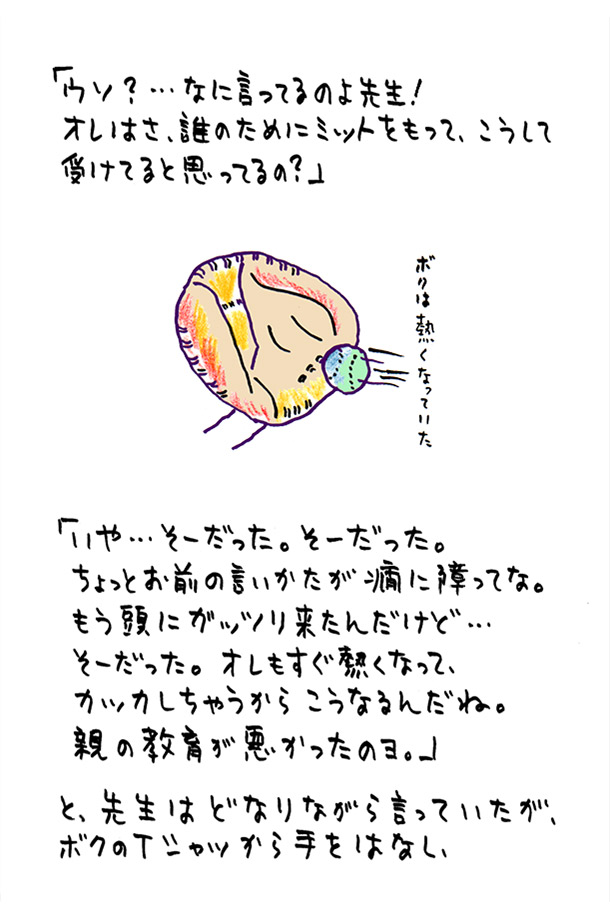 「ウソ？…なに言ってるのよ先生！
オレはさ、誰のためにミットをもって、こうして
受けてると思ってるの？」
ボクは熱くなっていた
「いや…そーだった。そーだった。
ちょっとお前の言いかたが癇に障ってな。
もう頭にガッツリ来たんだけど…
そーだった。オレもすぐ熱くなって、
カッカしちゃうからこうなるんだね。
親の教育が悪かったのヨ。」
と、先生はどなりながら言っていたが、
ボクのTシャツから手をはなし、